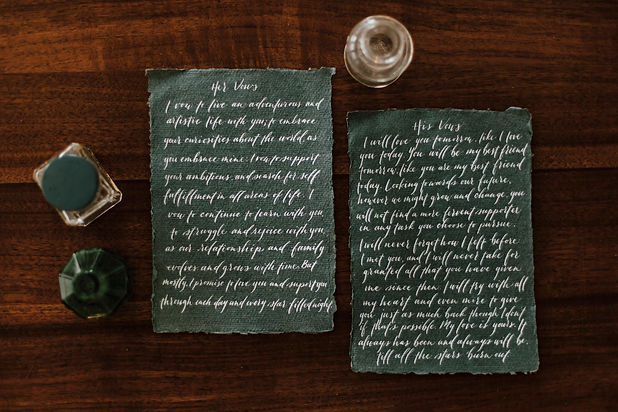 Her Vows
I vow to live an adventurous and
artistic life with you, to embrace
your curiosities about the world, as
you embrace mine. I vow to support
your ambitions, and search for self
fulfillment in all areas of life. I
vow to continue to learn with you
to struggle and rejoice with you,
as our relationship and family
evolves and grows with time. But
mostly, I promise to love you and support you
through each day and every star filled night.
His Vows
I will love you tomorrow, like I love
you today. You will be my best friend
tomorrow, like you are my best friend
today. Looking towards our future,
however we might grow and change, you
will not find a more fervent supporter
in any task you choose to pursue.
I will never forget how I felt before
I met you, and I will never take for
granted all that you have given
me since then. I will try with all
my heart and even more to give
you just as much back though I don't
if that's possible. My love is yours. It
always has been and always will be.
till all the stars burn out